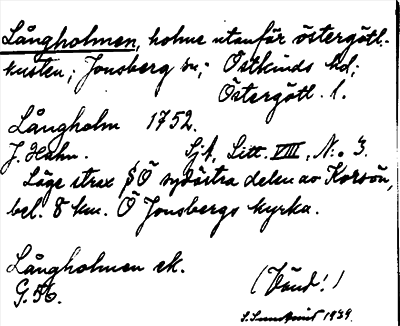 Långholmen, holme utanför östergötl.-
kusten; Jonsberg sn; Östkinds hd;
Östergötl. l.
Långholm 1752.
J. Hahn. Sjk. Litt. VIII, N:o 3.
Läge strax Ö sydöstra delen av Korsön,
bel. 8 km. Ö Jonsbergs kyrka.
Långholmen ek.
G. 56. (Vänd!)
1939.